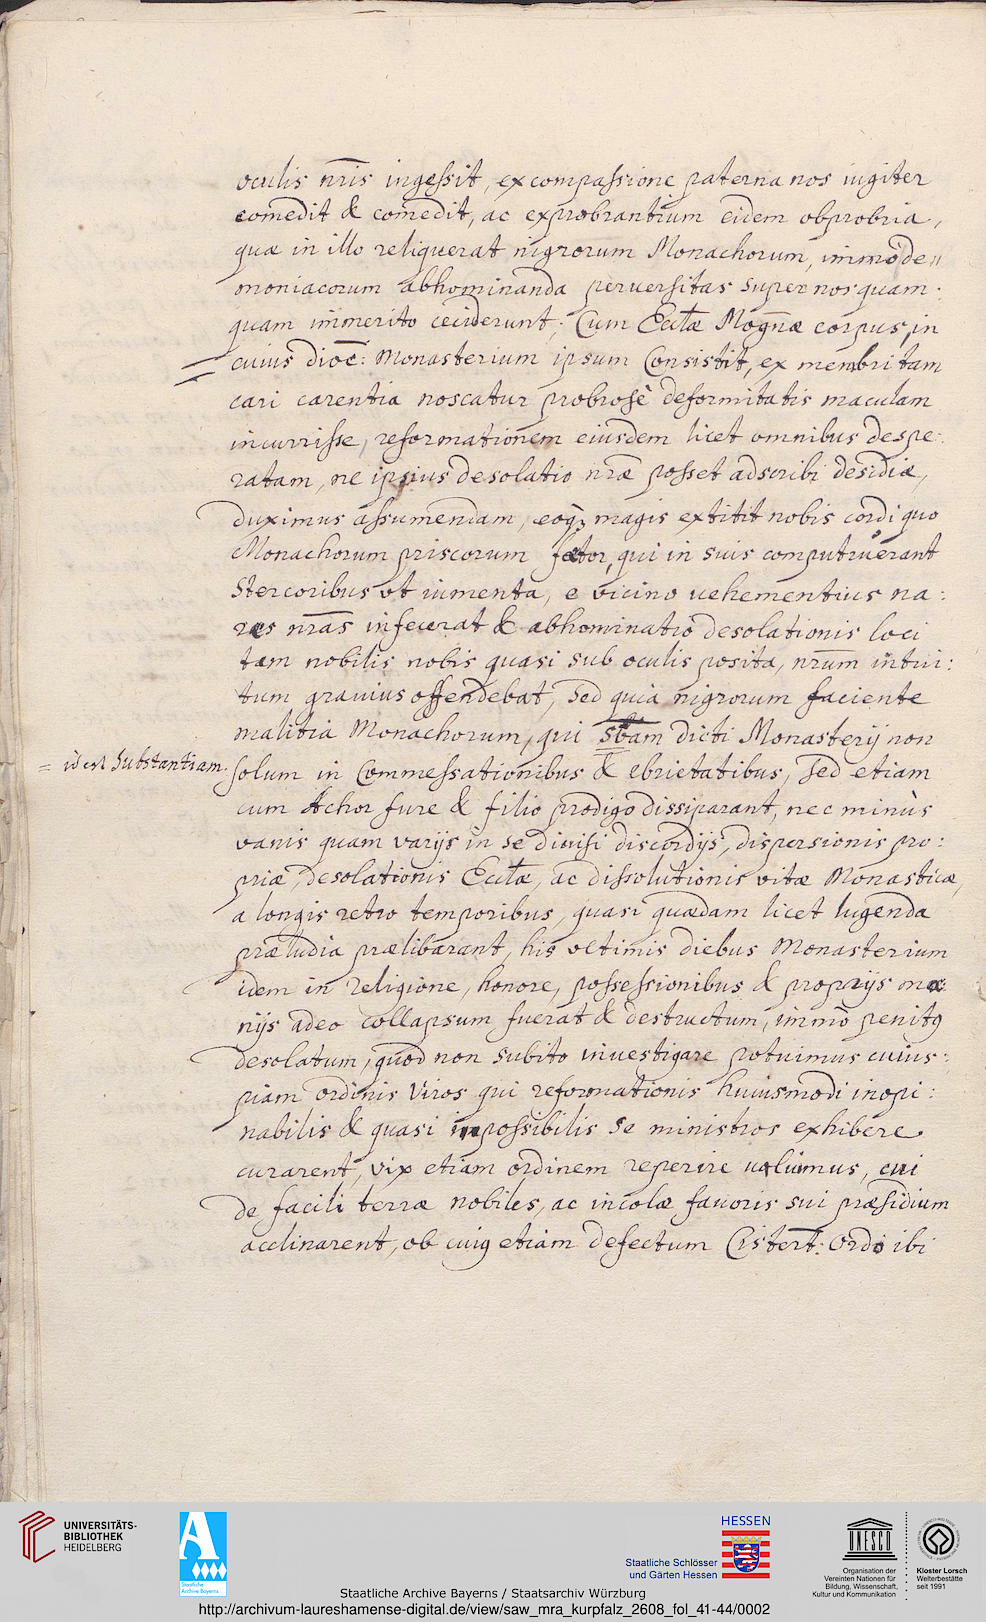 oculis nr̄is ingessit, ex compassione paterna nos iugiter
comedit & comedit, ac exprobrantium eidem obprobria,
quæ in illo reliquerat nigrorum Monachorum, immò de„
moniacorum abhominanda peruersitas super nos quam:
quam immerito ceciderunt; Cum Eccl̄æ Mogn̄æ corpus, in
cuius dioc̄: Monasterium ipsum Consistit, ex membri tam
cari carentia noscatur probrosè deformitatis maculam
incurrisse, reformationem eiusdem licet omnibus despe:
ratam, ne ipsius desolatio nr̄æ posset adscribi desidiæ,
duximus assumendam, eoq; magis extitit nobis cordi quo
Monachorum priscorum fœtor, qui in suis computruerant
Stercoribus vt iumenta, e vicino vehementius na:
res nr̄as infecerat & abhominatio desolationis loci
tam nobilis nobis quasi sub oculis posita, nr̄um intui:
tum grauius offendebat, Sed quia nigrorum faciente
malitia Monachorum, qui sb̄am dicti Monasterij non
= id est Substantiam.
solum in Commessationibus & ebrietatibus, sed etiam
cum Achor fure & filio prodigo dissiparant, nec minùs
vanis quam varijs in se diuisi discordijs, dispersionis pro:
priæ, desolationis Eccl̄æ, ac dissolutionis vitæ Monasticæ,
a longis retro temporibus, quasi quædam licet lugenda
præludia prælibarant, his vltimis diebus Monasterium
idem in religione, honore, possessionibus & proprijs mæ:
nijs adeo collapsum fuerat & destructum, immò penitꝰ
desolatum, quod non subito inuestigare potuimus cuius:
piam ordinis Viros qui reformationis huiusmodi inopi:
nabilis & quasi impossibilis se ministros exhibere
curarent, vix etiam ordinem reperire ualuimus, cui
de facili terræ nobiles, ac incolæ fauoris sui præsidium
acclinarent, ob cuiꝰ etiam defectum Cistert̄: Ordo ibi
UNIVERSITÄTS-
BIBLIOTHEK
HEIDELBERG
Staatliche
Archive Bayerns
HESSEN
Staatliche Schlösser
und Gärten Hessen
UNESCO
Organisation der
Vereinten Nationen für
Bildung, Wissenschaft,
Kultur und Kommunikation
Kloster Lorsch
Welterbestätte
seit 1991
Staatliche Archive Bayerns / Staatsarchiv Würzburg
http://archivum-laureshamense-digital.de/view/saw_mra_kurpfalz_2608_fol_41-44/0002